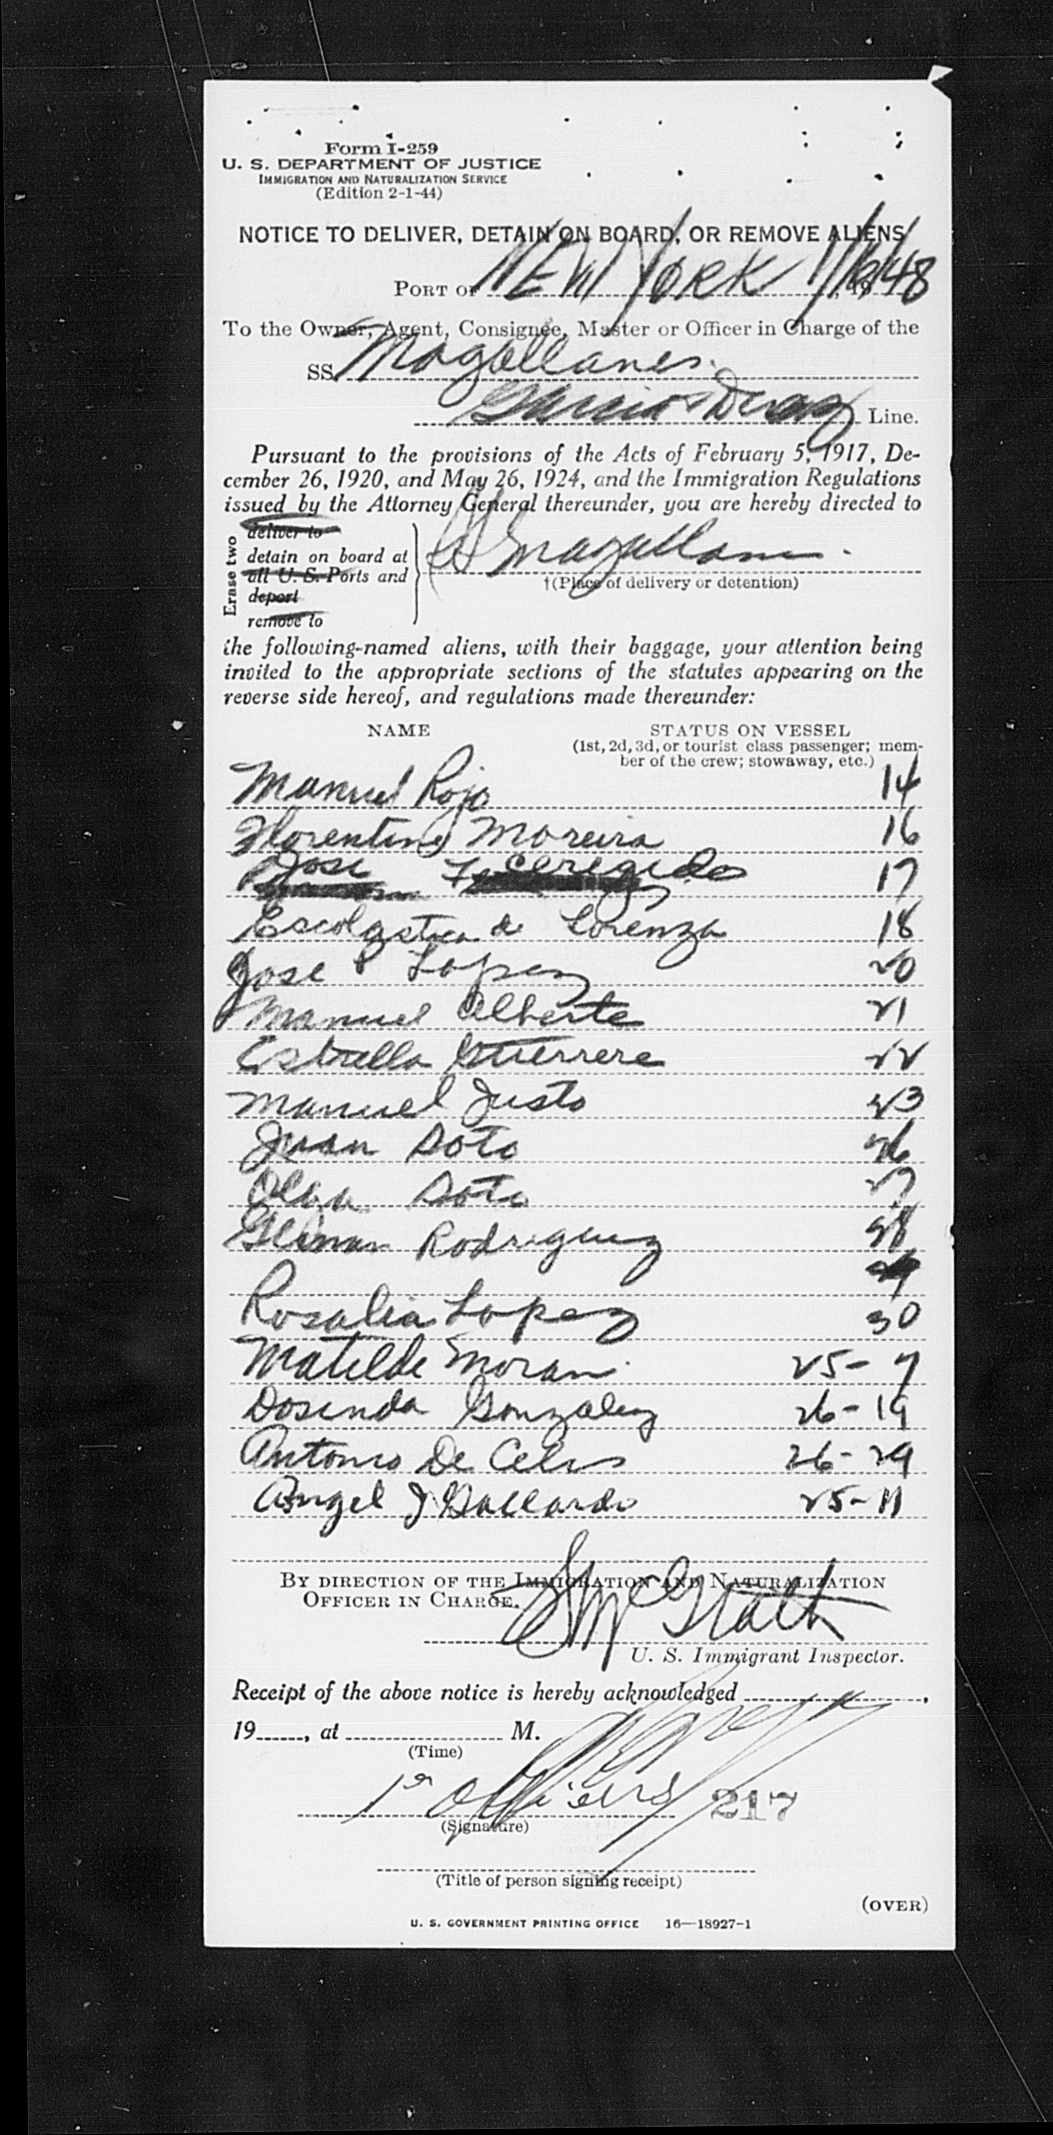 Form I-259
U. S. DEPARTMENT OF JUSTICE
IMMIGRATION AND NATURALIZATION SERVICE
(Edition 2-1-44)
NOTICE TO DELIVER, DETAIN ON BOARD, OR REMOVE ALIENS
PORT OF NEW YORK 1/16/48, 19
To the Owner, Agent, Consignee, Master or Officer in Charge of the
SS Magallanes.
Garcia & Diaz Line.
Pursuant to the provisions of the Acts of February 5, 1917, De-
cember 26, 1920, and May 26, 1924, and the Immigration Regulations
issued by the Attorney General thereunder, you are hereby directed to
Erase two
deliver to
detain on board at
all U. S. Ports and
deport
remove to
SS Magallanes.
†(Place of delivery or detention)
the following-named aliens, with their baggage, your attention being
invited to the appropriate sections of the statutes appearing on the
reverse side hereof, and regulations made thereunder:
NAME STATUS ON VESSEL
(1st, 2d, 3d, or tourist class passenger; mem-
ber of the crew; stowaway, etc.)
Manuel Rojo 14
Florentino Moreira 16
Jose Ceregido 17
Escolastica de Lorenza 18
Jose P Lopez 20
Manuel Alberte 21
Estrella Gutierrere 22
Manuel Justo 23
Juan Soto 26
Olga Soto 27
German Rodriguez 28
29
Rosalia Lopez 30
Matilde Moran. 25-7
Dosinda Gonzalez 26-19
Antonio De Celis 26-29
Angel J Gallardo 25-11
BY DIRECTION OF THE IMMIGRATION AND NATURALIZATION
OFFICER IN CHARGE.
McGrath
U. S. Immigrant Inspector.
Receipt of the above notice is hereby acknowledged ,
19 , at M.
(Time)
1er Officers 217
(Signature)
(Title of person signing receipt)
(OVER)
U. S. GOVERNMENT PRINTING OFFICE 16—18927-1